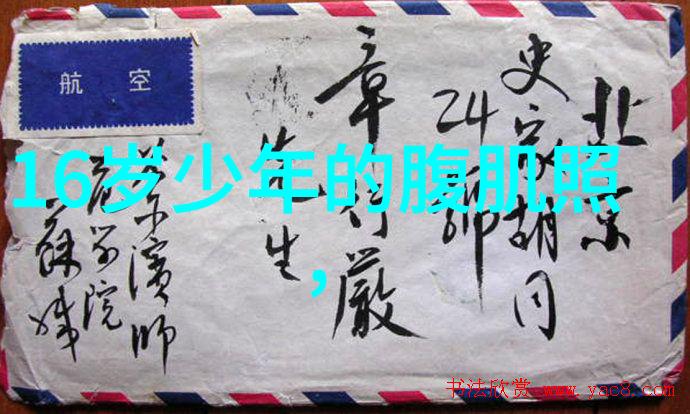 航空
北京
史家胡同
24号
章行嚴
先生
哈尔滨师
范学院
16岁少年的腹肌照
，
书法欣赏 www.yac8.com